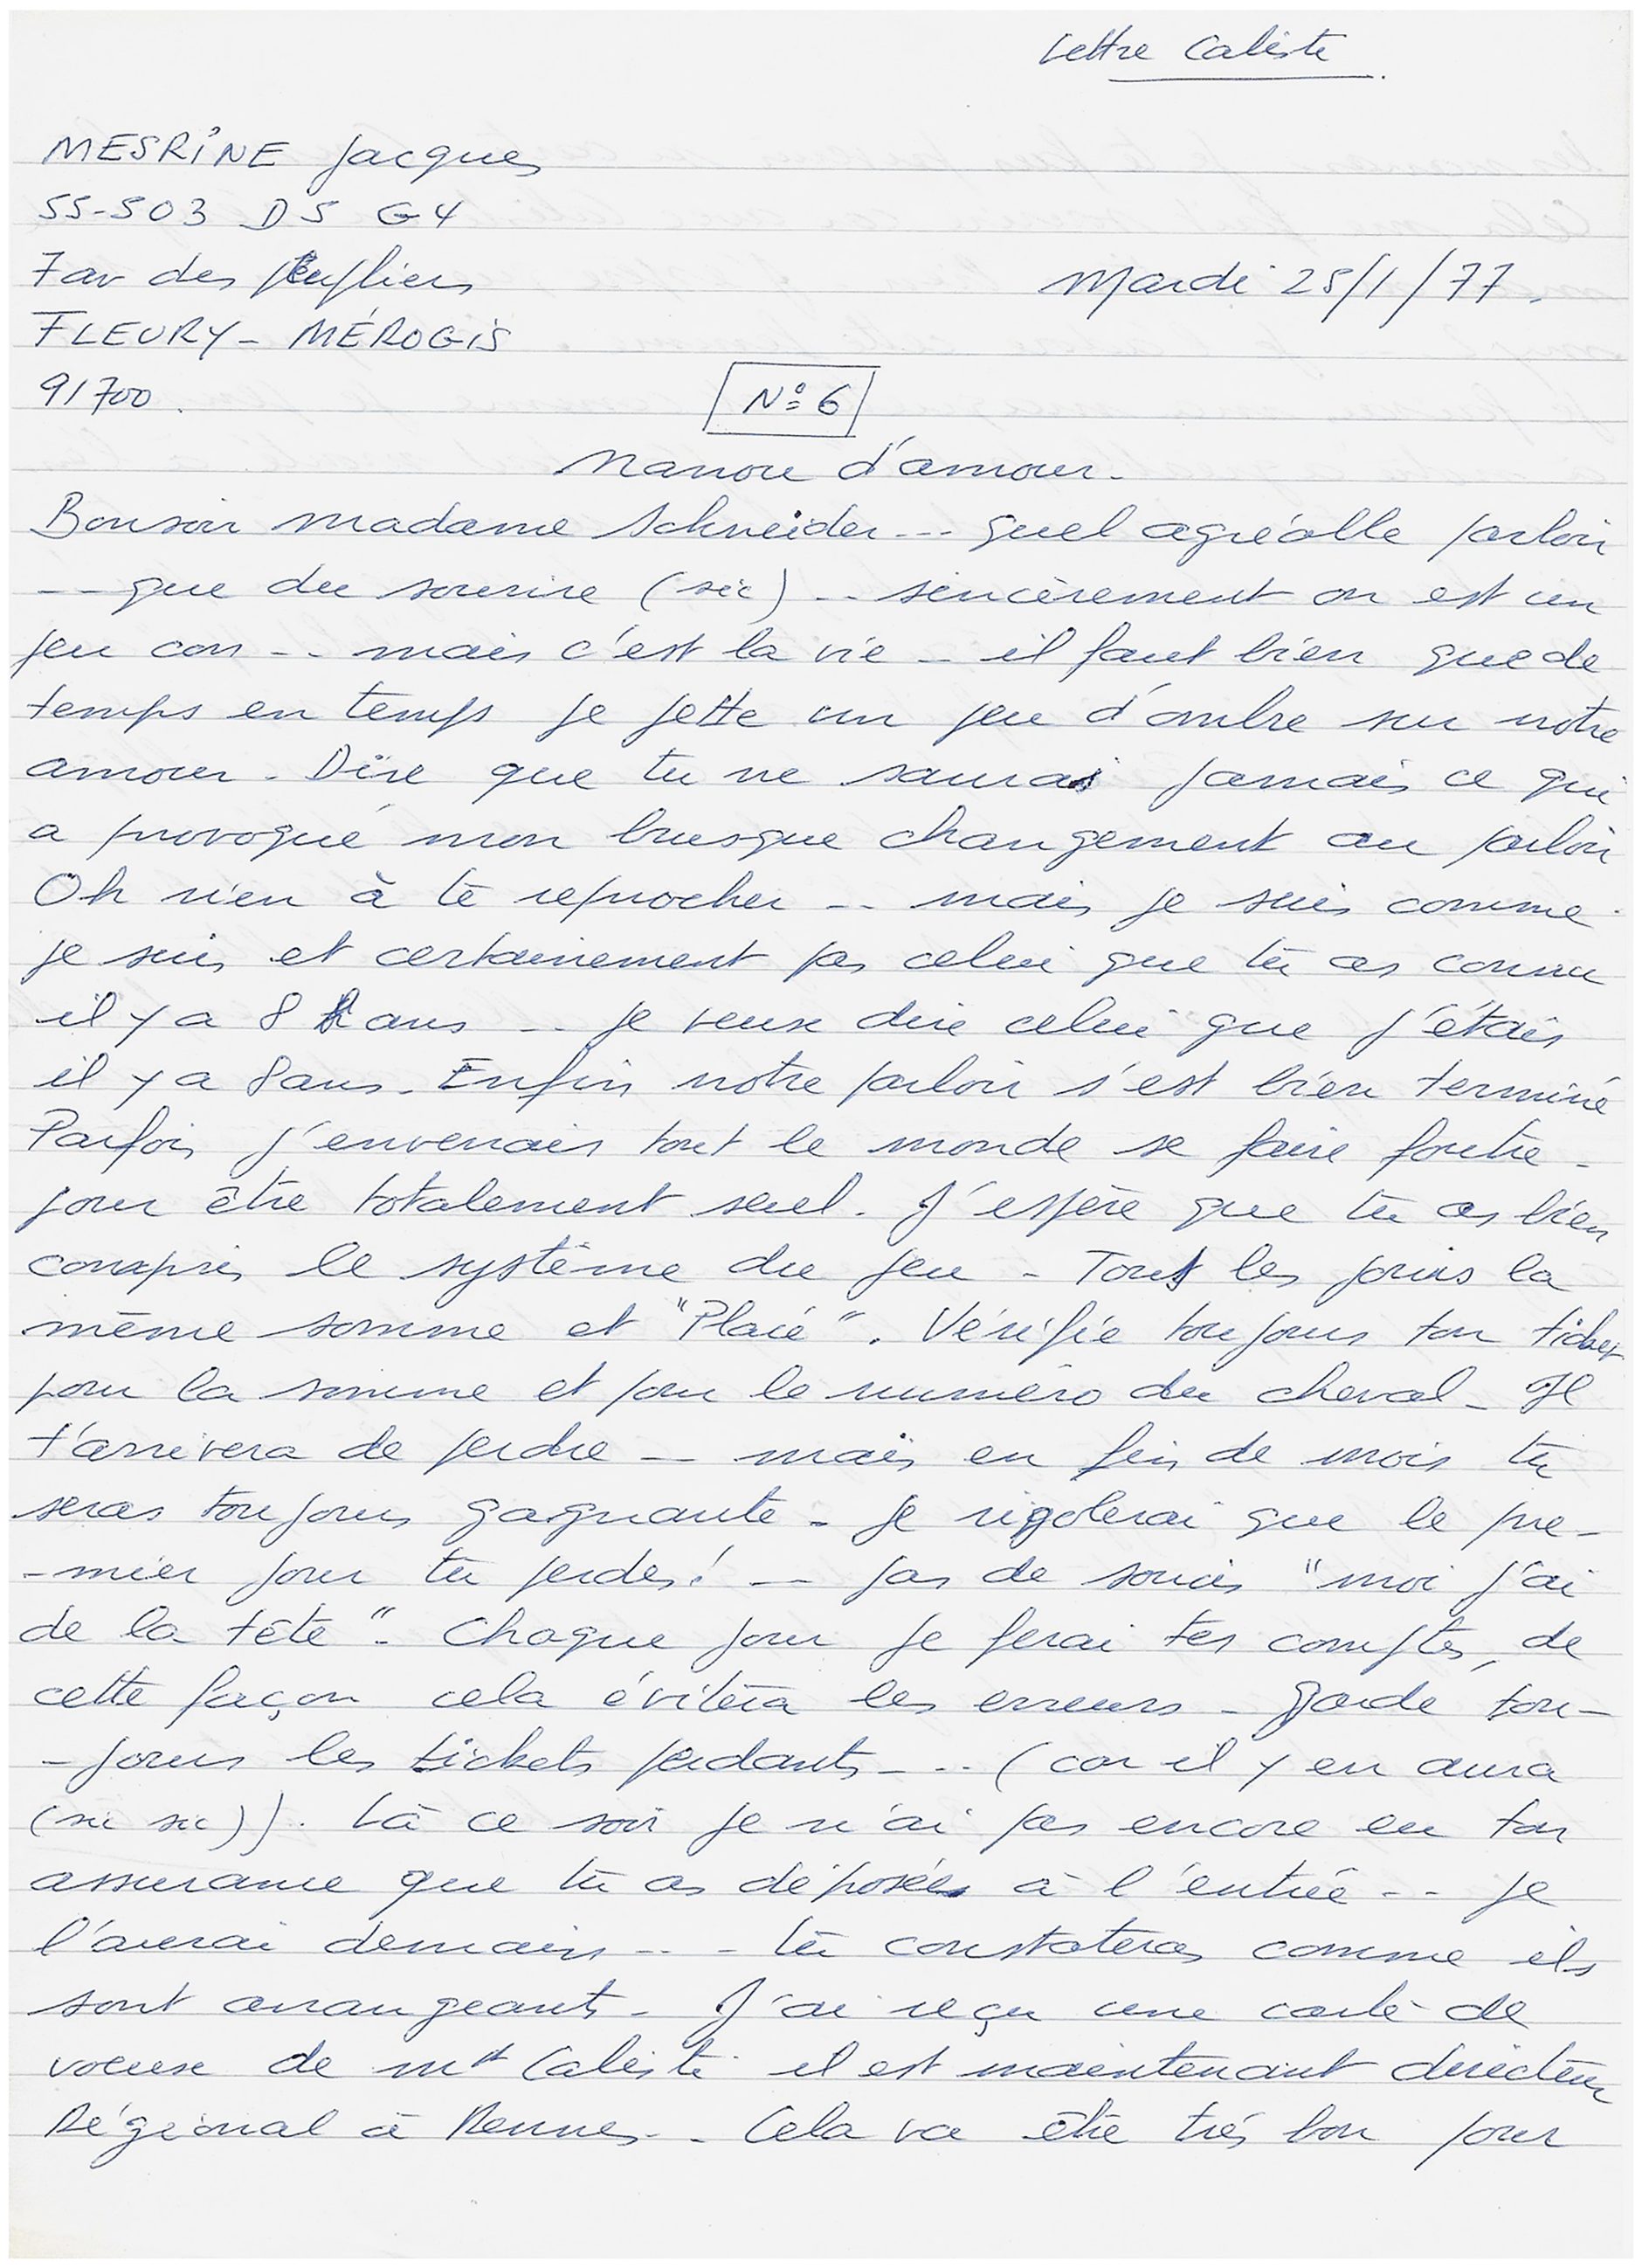 Lettre Caliste
MESRINE Jacques
55-503 D5 G4
7 av des Peupliers
Mardi 25/1/77.
FLEURY-MÉROGIS
91700.
N° 6
Nanou d'amour.
Bonsoir madame Schneider... quel agréable parloir
-- que du sourire (sic) .. sincèrement on est un
peu con -.. mais c'est la vie - il faut bien que de
temps en temps je jette un peu d'ombre sur notre
amour. Dire que tu ne sauras jamais ce qui
a provoqué mon brusque changement au parloir
Oh rien à te reprocher -.. mais je suis comme
je suis et certainement pas celui que tu as connu
il y a 8 ans -.. je veux dire celui que j'étais
il y a 8 ans. Enfin notre parloir s'est bien terminé
Parfois j'enverrais tout le monde se faire foutre -
pour être totalement seul. J'espère que tu as bien
compris le système du jeu - Tous les jours la
même somme et "Placé". Vérifie toujours ton ticket
pour la somme et pour le numéro du cheval - Il
t'arrivera de perdre -- mais en fin de mois tu
seras toujours gagnante - je rigolerai que le pre-
-mier jour tu perdes! -- pas de soucis "moi j'ai
de la tête". Chaque jour je ferai tes comptes, de
cette façon cela évitera les erreurs - garde tou-
-jours les tickets perdants -.. (car il y en aura
(sic sic)). Là ce soir je n'ai pas encore eu ton
assurance que tu as déposée à l'entrée -.. je
l'aurai demain -.. tu constateras comme ils
sont arrangeants - J'ai reçu une carte de
voeux de Mr Caliste il est maintenant directeur
Régional à Rennes -. Cela va être très bon pour